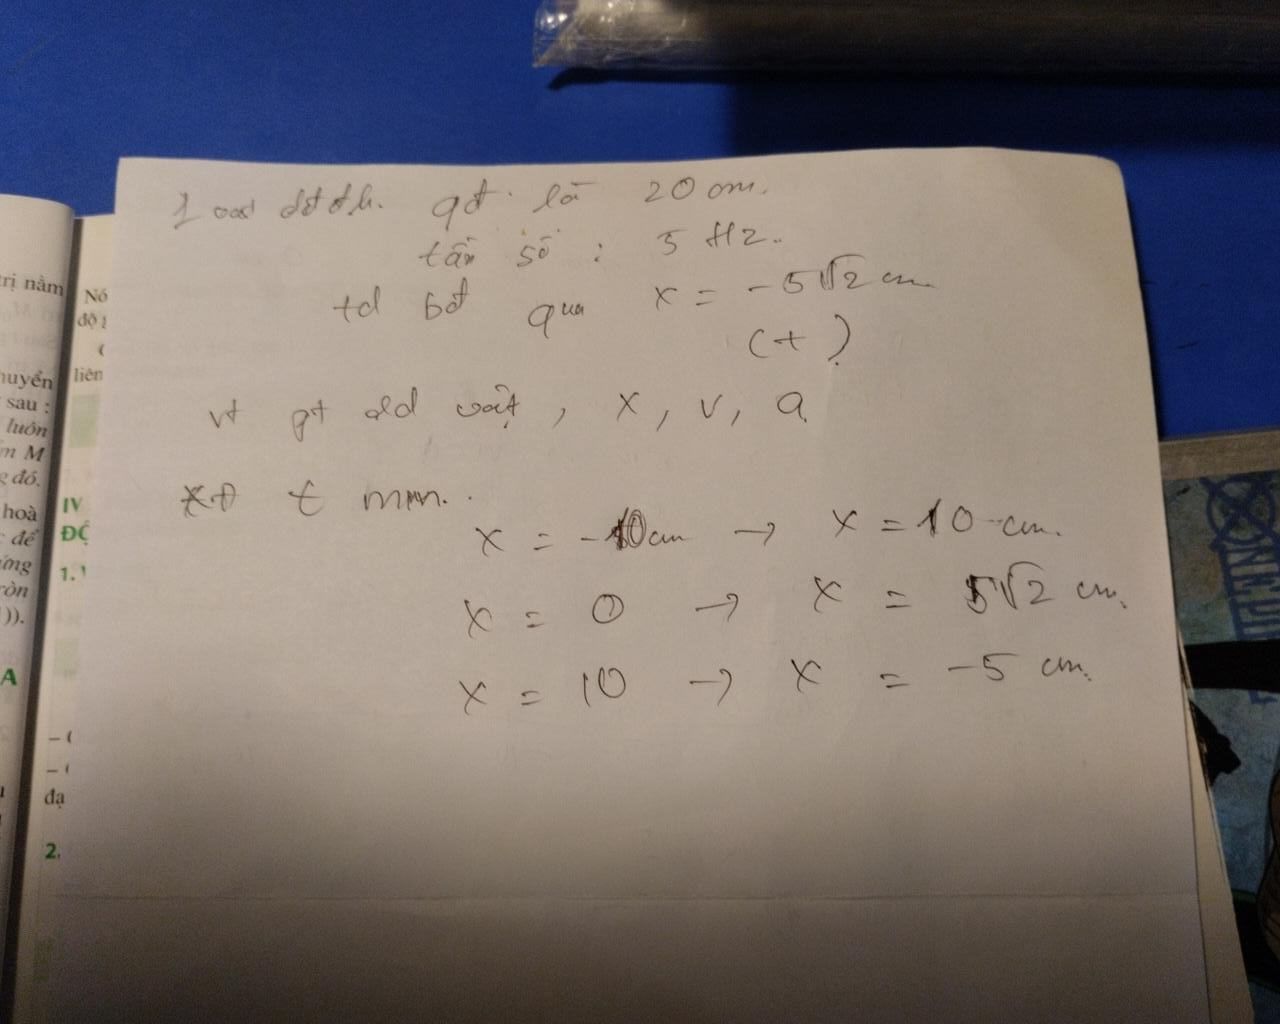 trị nằm
huyển
sau :
luôn
m M
g đó.
hoà
c để
ứng
ròn
)).
A
Nó
độ g
liên
IV
ĐỘ
1. V
đạ
2.
1 vật dđđh. qđ là 20 cm.
tần số : 5 Hz.
td bđ qua x = -5√2 cm
(+)
vt pt dđ vật, x, v, a
t min.
x = -10 cm → x = 10 cm.
x = 0 → x = 5√2 cm.
x = 10 → x = -5 cm.